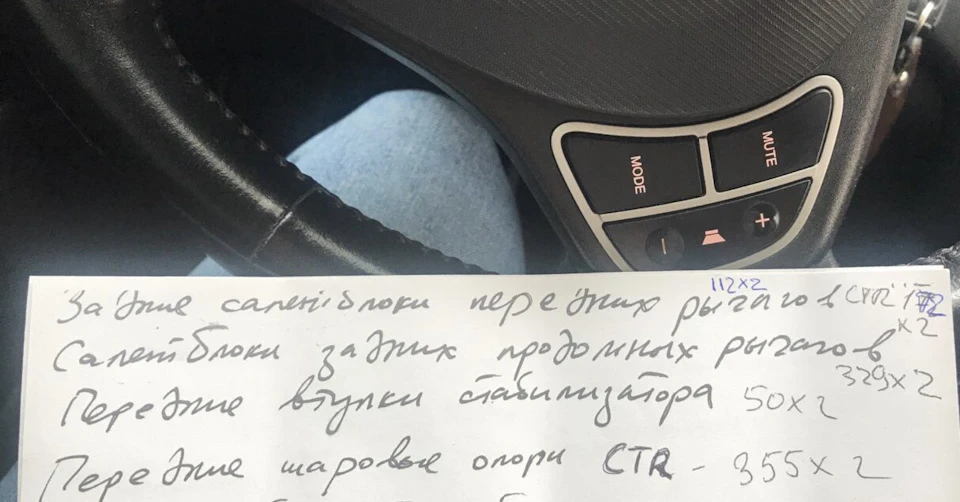 MODE
MUTE
112x2
Задние салентблоки передних рычагов CTR
x2
Салентблоки задних продолных рычагов
329x2
Передние втулки стабилизатора 50x2
Передние шаровые опори CTR - 355x2